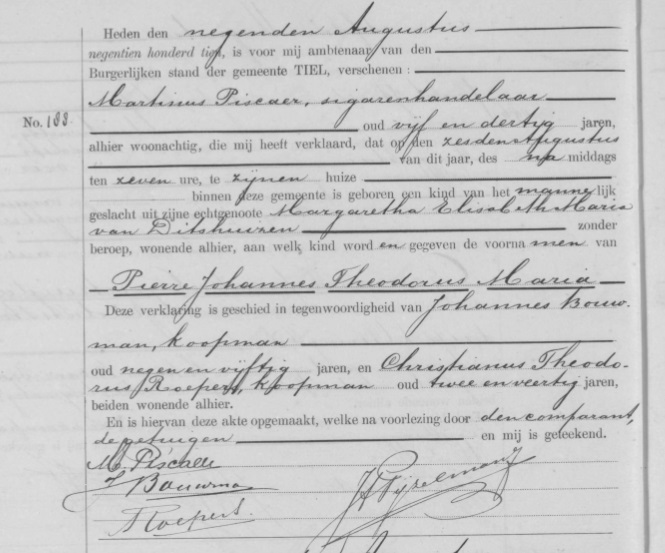 Heden den negenden Augustus
negentien honderd tien, is voor mij ambtenaar van den
Burgerlijken stand der gemeente TIEL, verschenen :
Martinus Piscaer, sigarenhandelaar
No. 133
oud vijf en dertig jaren,
alhier woonachtig, die mij heeft verklaard, dat op den zesden Augustus
van dit jaar, des na middags
ten zeven ure, te zijnen huize
binnen deze gemeente is geboren een kind van het mannelijk
geslacht uit zijne echtgenoote Margaretha Elisabeth Maria
van Ditshuizen zonder
beroep, wonende alhier, aan welk kind word en gegeven de voorna men van
Pierre Johannes Theodorus Maria
Deze verklaring is geschied in tegenwoordigheid van Johannes Bouw-
man, koopman
oud negen en vijftig jaren, en Christianus Theodo-
rus Roepers, koopman oud twee en veertig jaren,
beiden wonende alhier.
En is hiervan deze akte opgemaakt, welke na voorlezing door den comparant,
de getuigen en mij is geteekend.
M. Piscaer
J Bouwman
Roepers